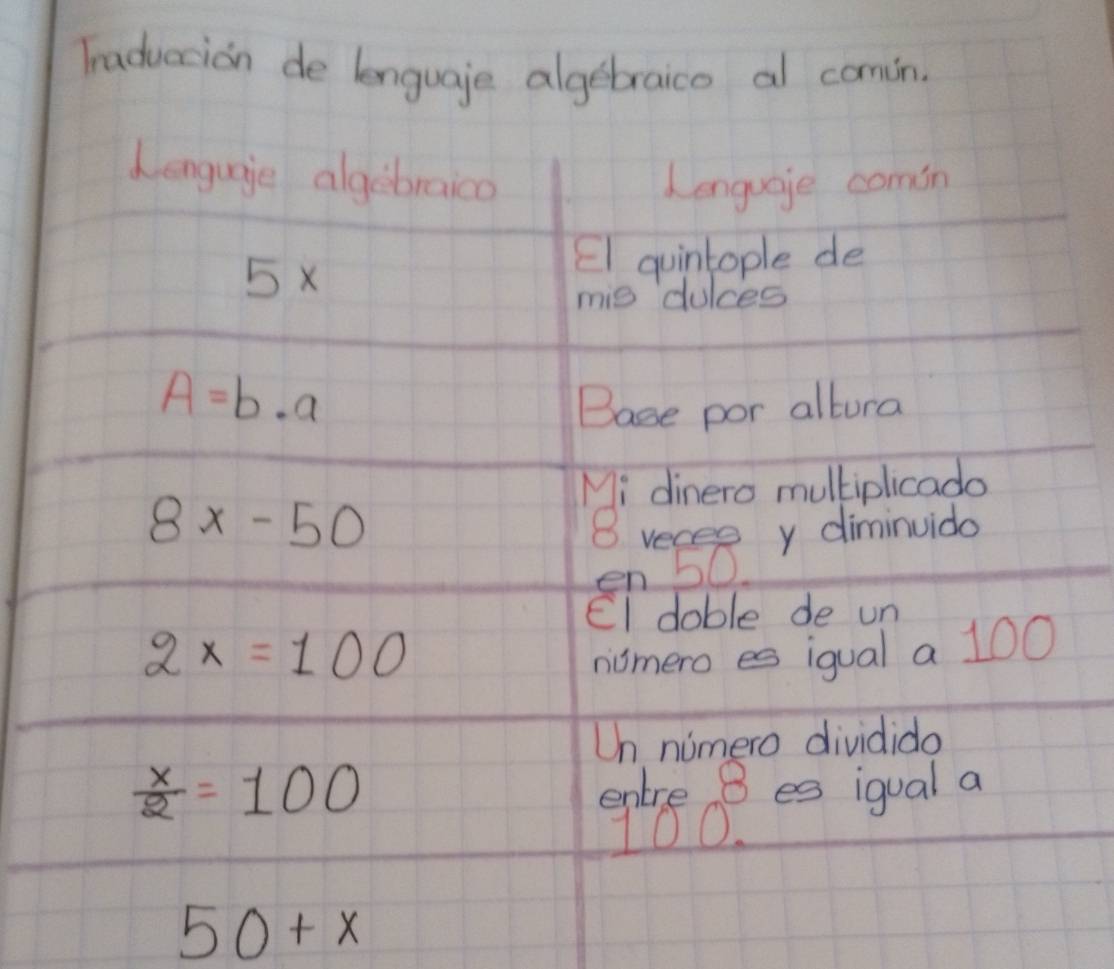 Traducción de lenguaje algébraico al común.
Lenguaje algébraico Lenguaje común
5x El quintople de
mis dulces
A=b.a Base por altura
8x-50 Mi dinero multiplicado
8 veces y diminuido
en 50.
2x=100 El doble de un
número es igual a 100
x/2=100 Un número dividido
entre 8 es igual a
100.
50+x